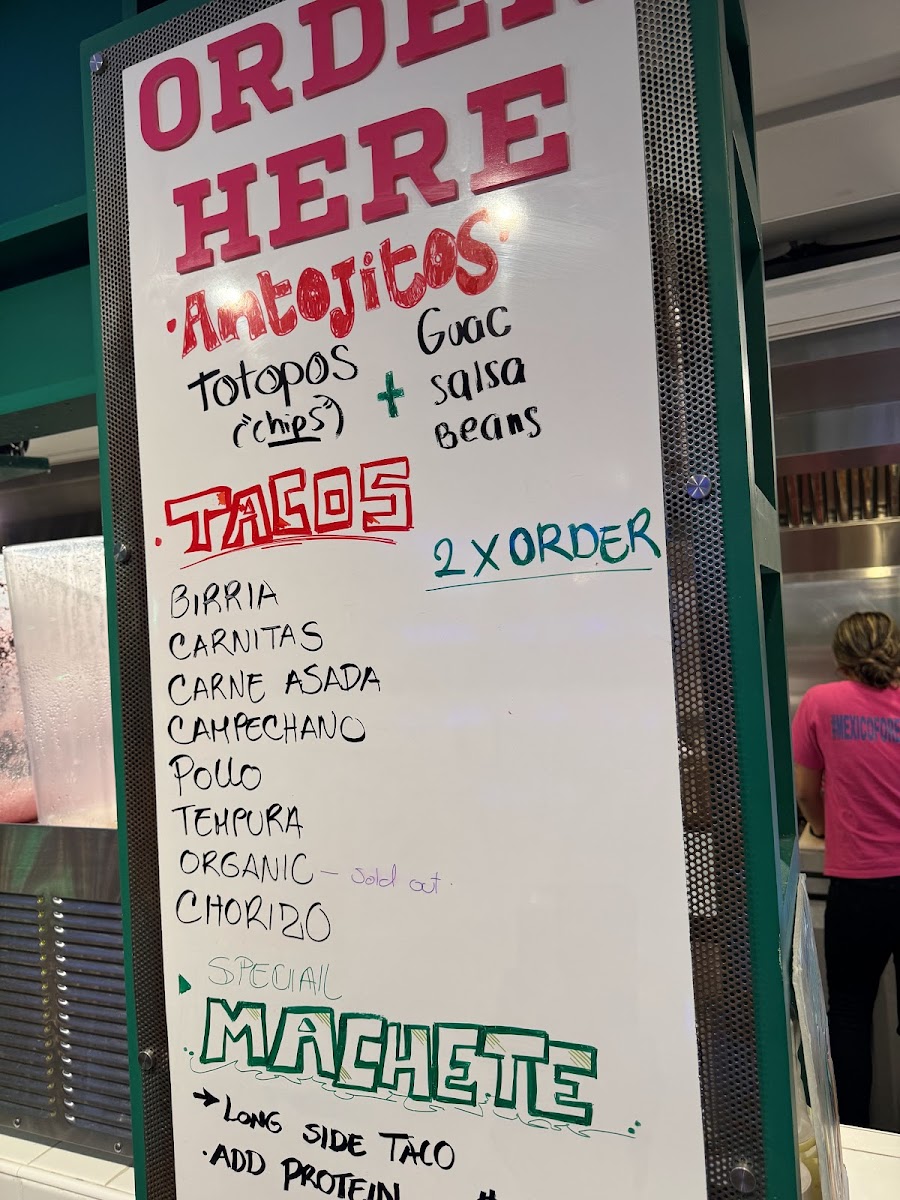 ORDER
HERE
·Antojitos·
TOTOPOS + Guac
("chips") salsa
Beans
·TACOS
2 X ORDER
BIRRIA
CARNITAS
CARNE ASADA
CAMPECHANO
POLLO
TEMPURA
ORGANIC - Sold out.
CHORIZO
SPECIAL
MACHETE
→ LONG SIDE TACO
·ADD PROTEIN
#MEXICOFOR